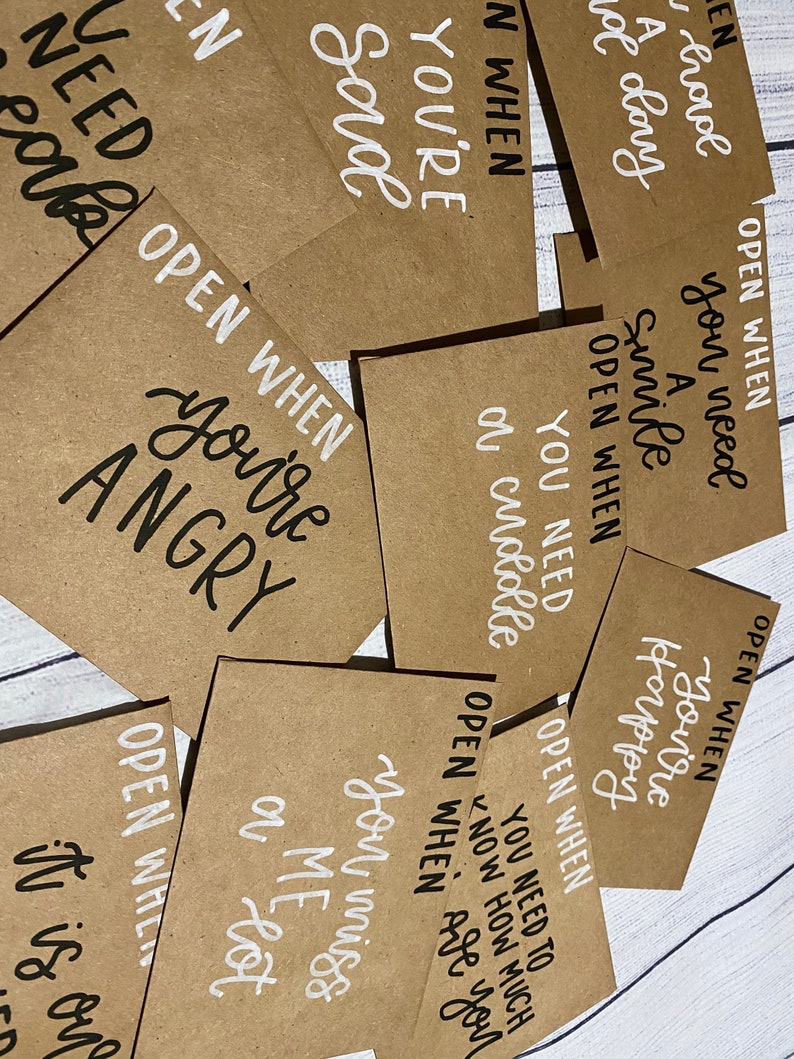 EN
NEED
OPEN WHEN
YOU'RE
Sad
WHEN
A
day
OPEN WHEN
you need
A
Smile
OPEN WHEN
you're
ANGRY
OPEN WHEN
YOU NEED
a cuddle
OPEN WHEN
you're
Happy
OPEN WHEN
it is
OPEN WHEN
you miss
ME
a lot
OPEN WHEN
YOU NEED TO
KNOW HOW MUCH
you